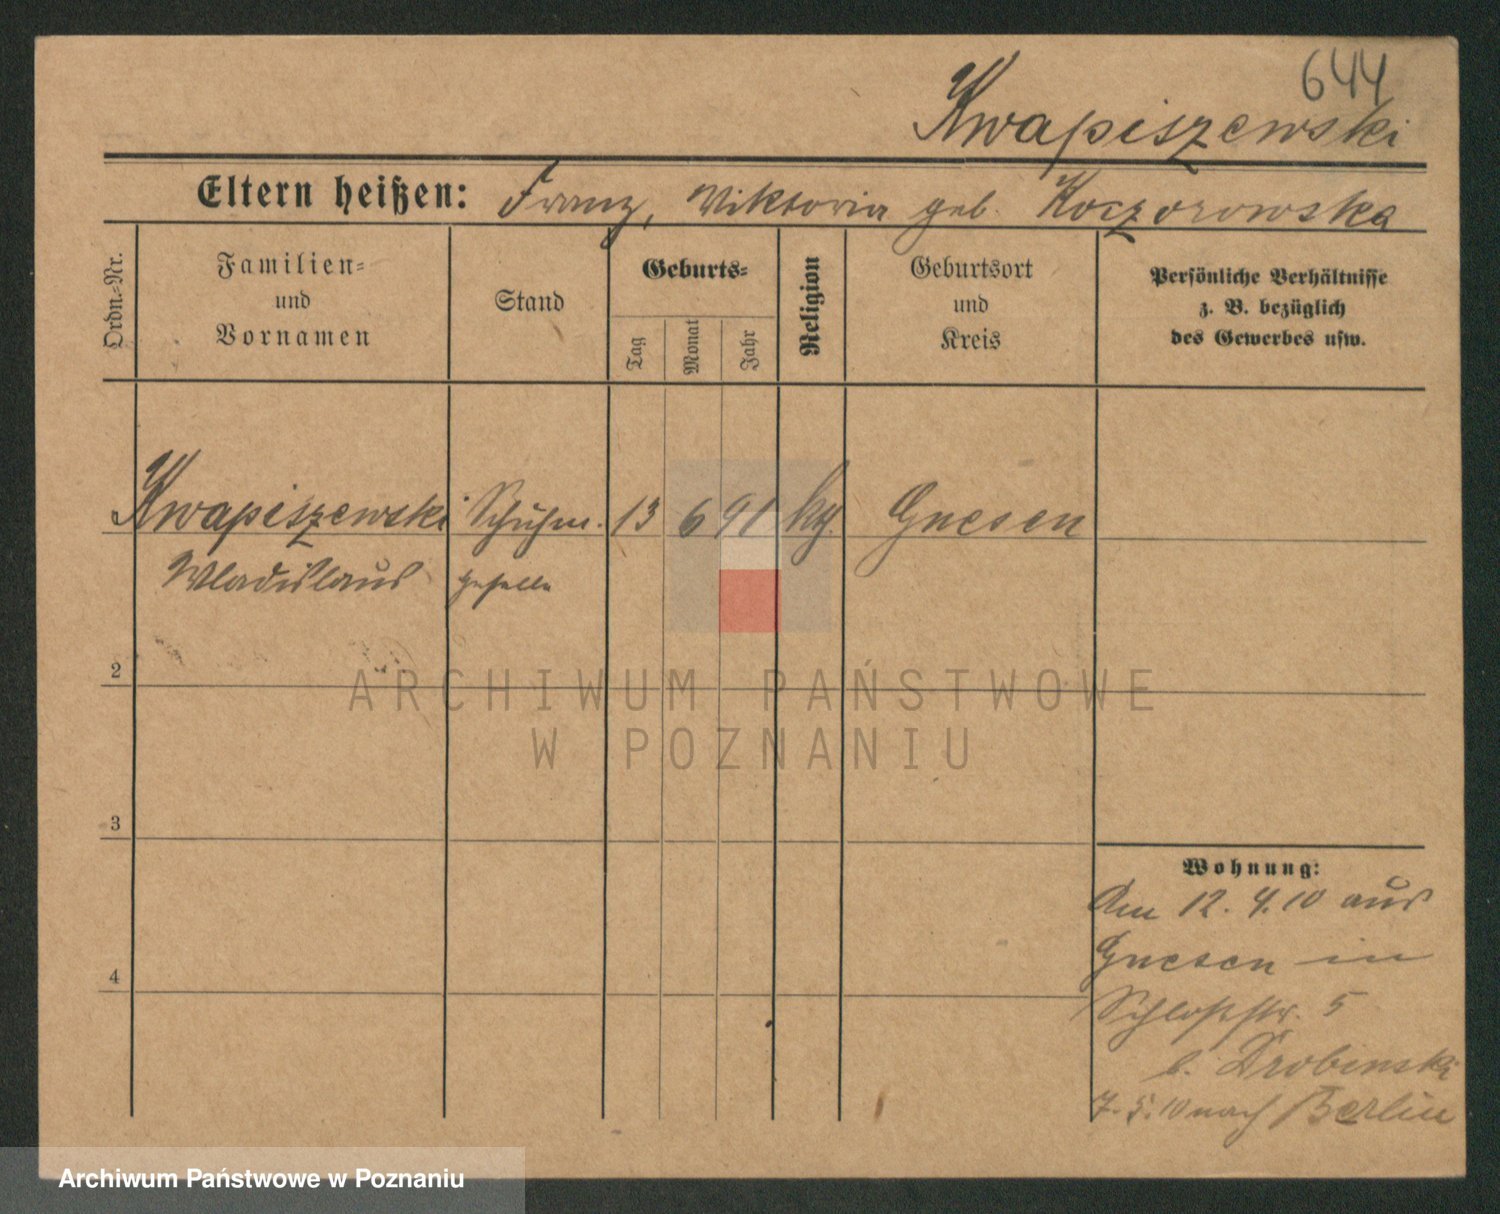 644
Kwapiszewski
Eltern heißen: Franz, Viktoria geb. Koczorowska
Ordn.-Nr.
Familien-
und
Vornamen
Stand
Geburts-
Tag
Monat
Jahr
Religion
Geburtsort
und
Kreis
Persönliche Verhältnisse
z. B. bezüglich
des Gewerbes usw.
Kwapiszewski Schuhm. 13 6 91 kg. Gnesen
Wladislaus geselle
2
ARCHIWUM PAŃSTWOWE
W POZNANIU
3
Wohnung:
Am 12. 4. 10 aus
Gnesen in
4
Schloßstr. 5
b. Drobinski
7. 5. 10 nach Berlin
Archiwum Państwowe w Poznaniu